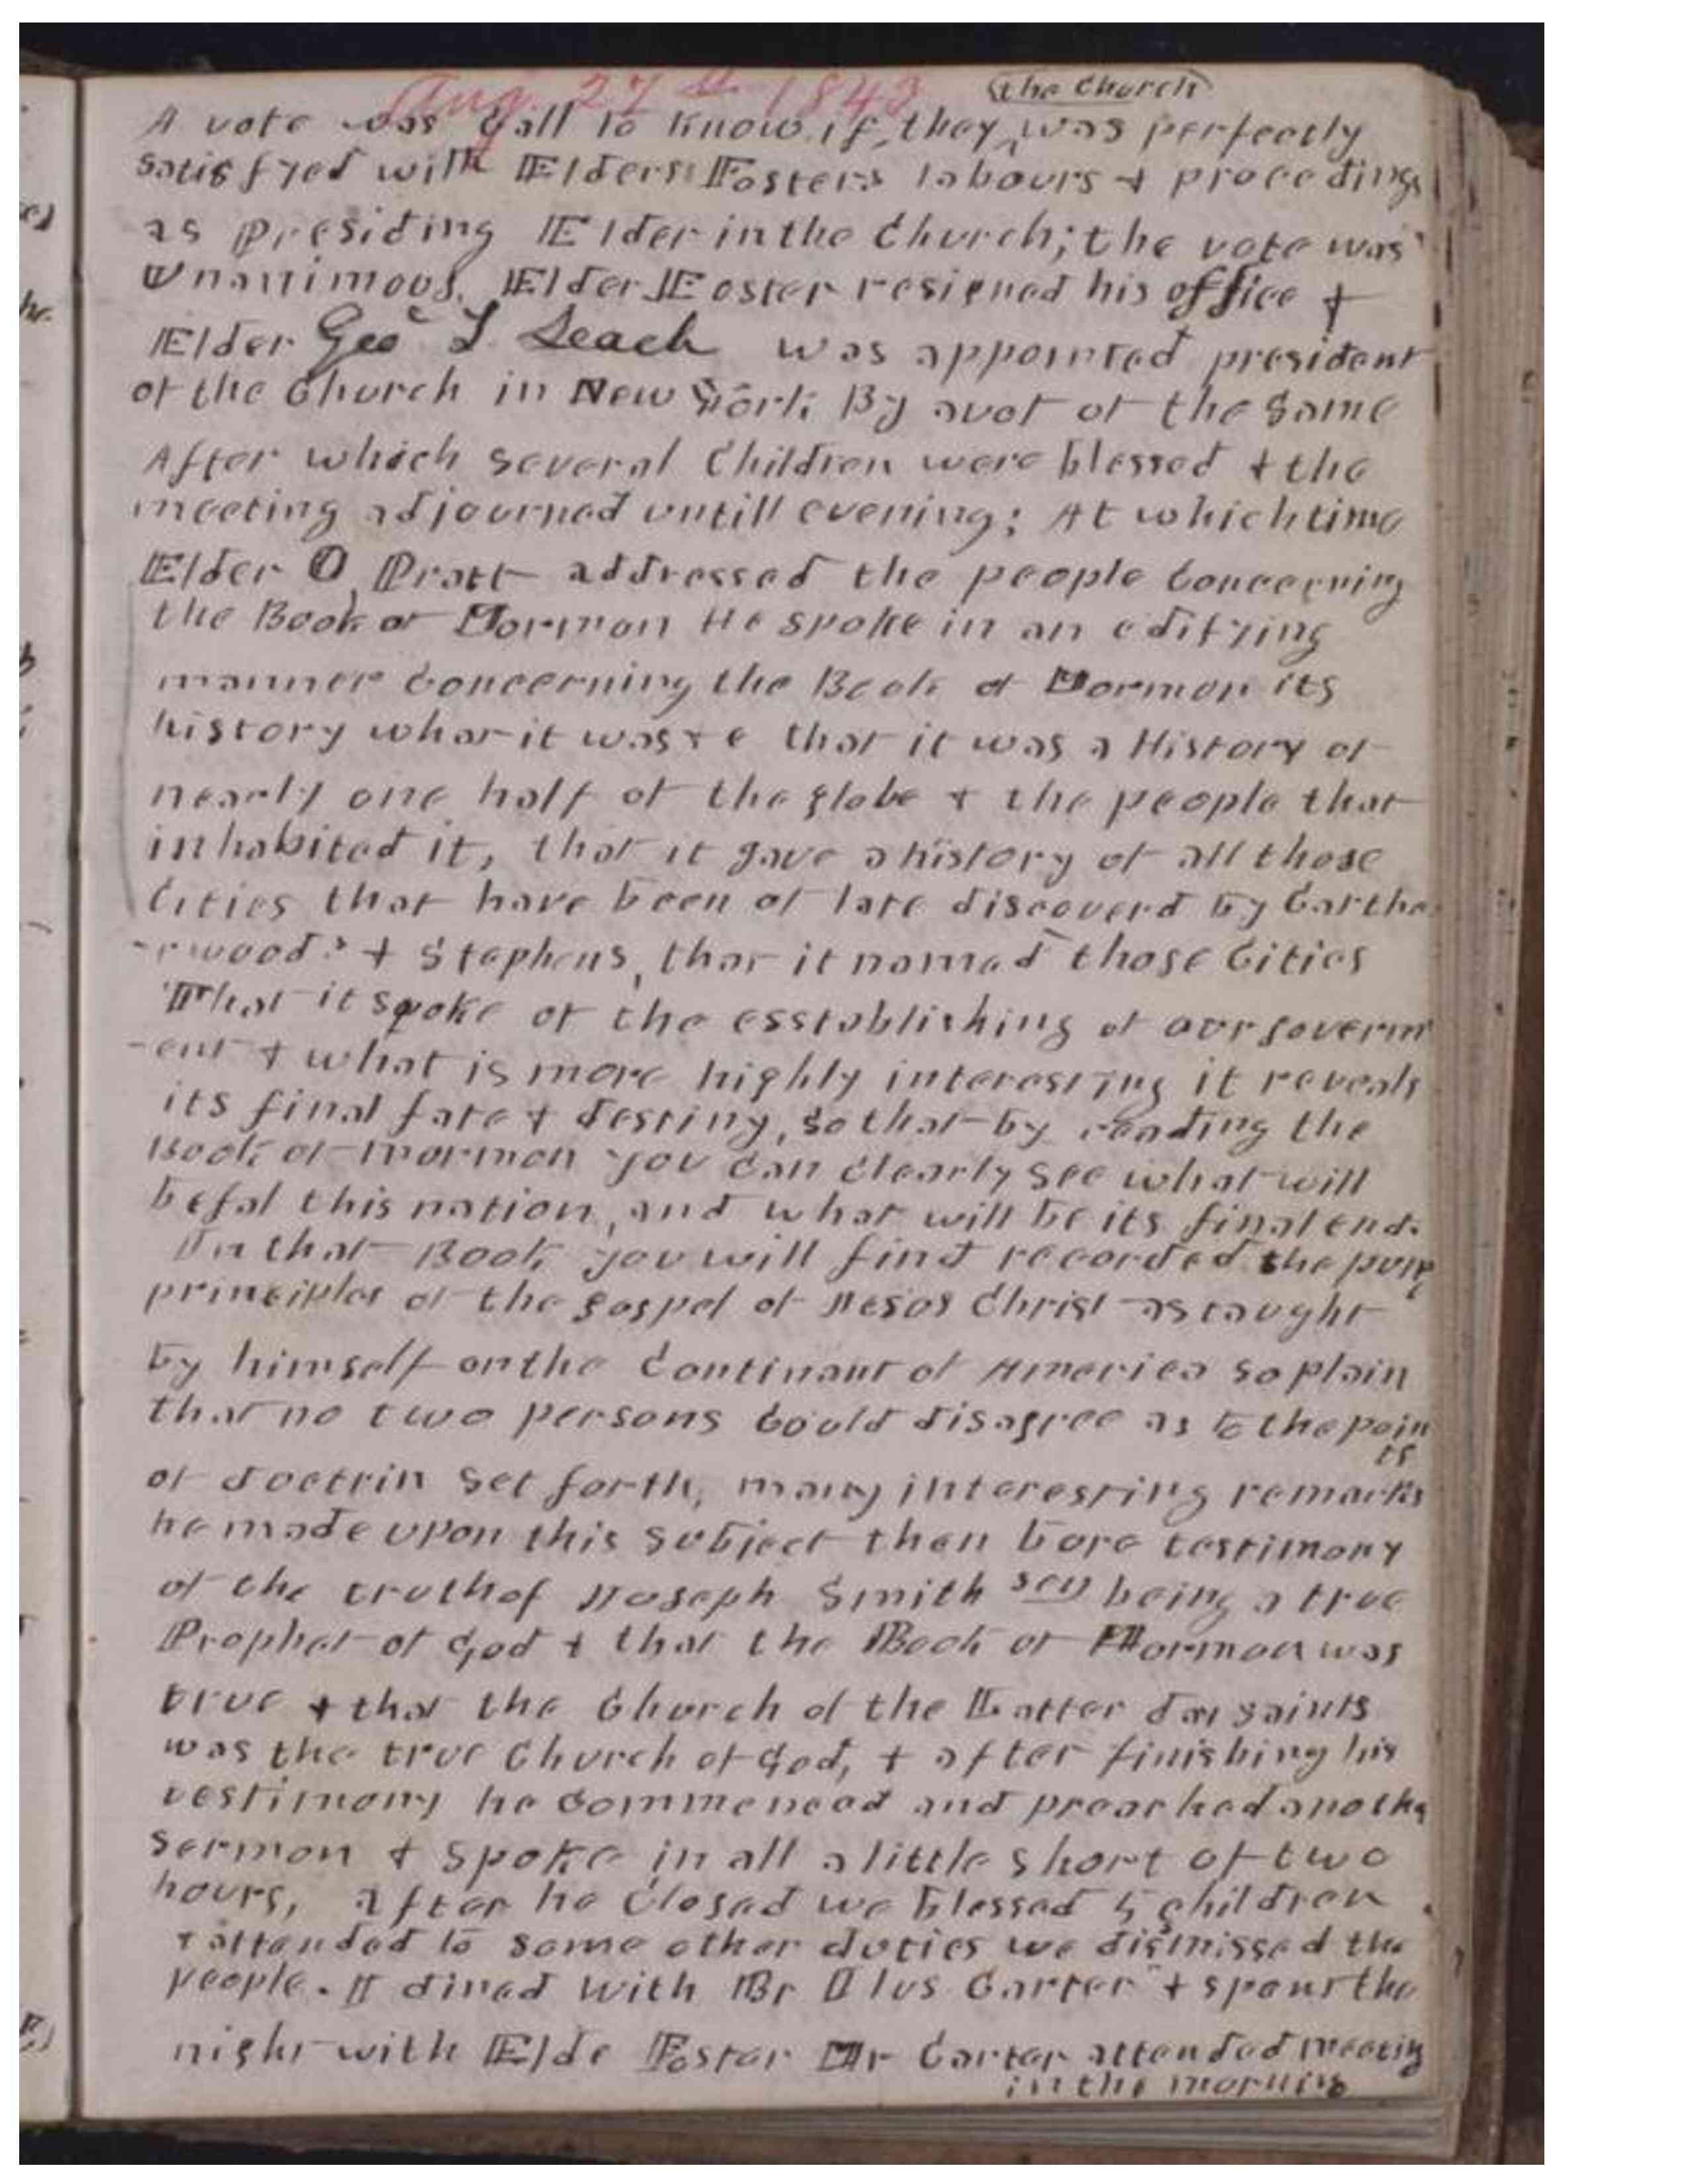 Aug. 27th 1843
the Church
A vote was gall to Know if, they, was perfectly
satisfyed with Elders Fosters labours & procedings
as presiding Elder in the Church; the vote was
Unanimous. Elder Foster resigned his office &
Elder Geo T. Leach was appointed president
of the Church in New York By a vot of the same
After which several Children were blessed & the
meeting adjourned untill evening; At which time
Elder O, Pratt addressed the people Concerning
the Book of Mormon He spoke in an edifying
manner Concerning the Book of Mormon its
history what it was &c that it was a History of
nearly one half of the globe & the people that
inhabited it, that it gave a history of all those
Cities that have been of late discoverd by Carthe
-rwood & Stephens, that it named those Cities
That it spoke of the esstablishing of our goverm
-ent & what is more highly interesting it reveals
its final fate & destiny, so that by reading the
Book of Mormon you can clearly see what will
befal this nation, and what will be its final end.
In that Book you will find recorded the pure
principles of the gospel of Jesus Christ as taught
by himself on the Continant of America so plain
that no two persons Could disagree as to the poin
ts
of doctrin set forth, many interesting remarks
he made upon this subject then bore testimony
of the truth of Joseph Smith sen being a true
Prophet of God & that the Book of Mormon was
true & that the Church of the Latter day saints
was the true Church of God, & after finishing his
testimony he Commenced and preached anothe
sermon & spoke in all a little short of two
hours, after he Closed we blessed 5 children
& attended to some other duties we dismissed the
people. I dined with Br Carter & spent the
night with Elde Foster Mr Carter attended meeting
in the morning